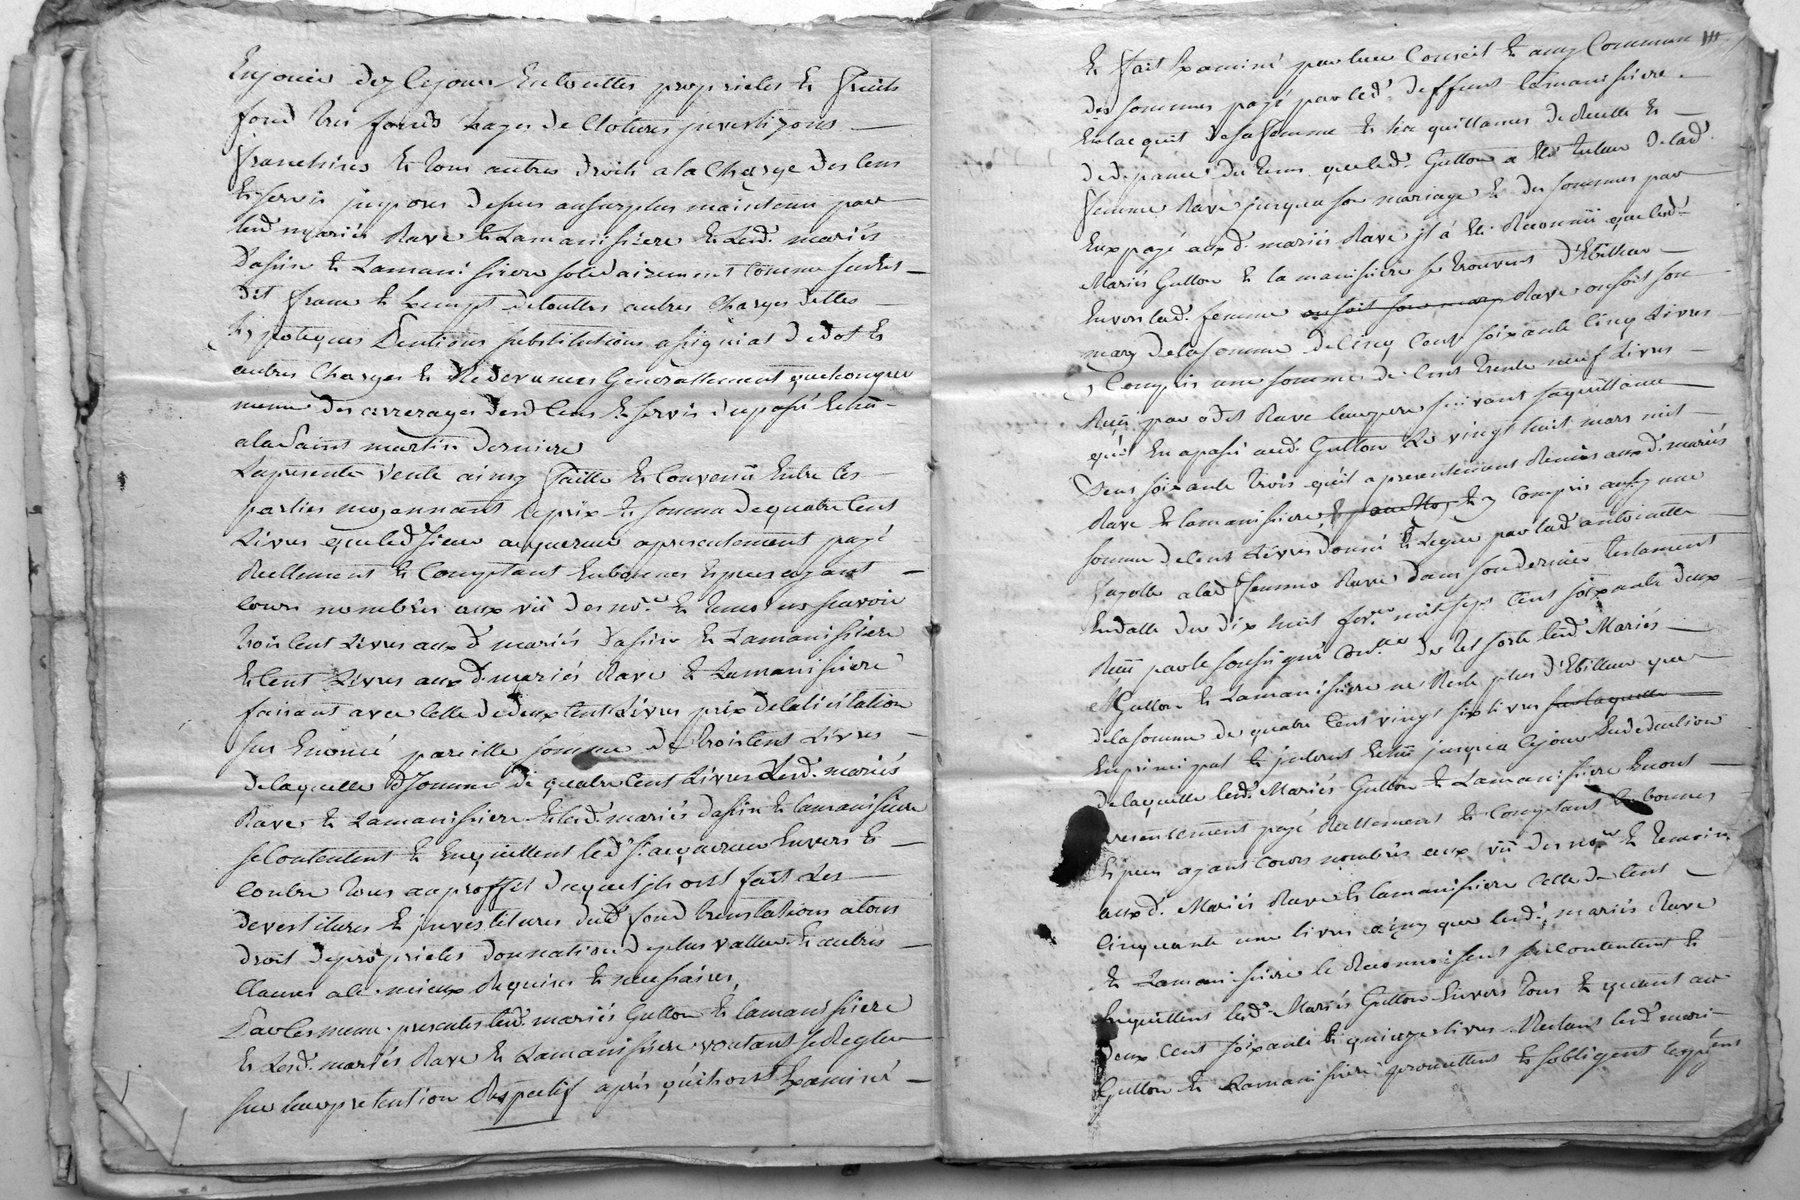 En jouir dez le jour en touttes proprietes et fruits
fond tres fonds hayes de clotures investizons
franchises et tous autres droits a la charge des cens
et servis imposes desus au surplus maintenu par
lesd mariés Rave et Lamanissiere et lesd. mariés
Dasin et Lamanissiere solidairement comme susdit
franc et exempt de touttes autres charges dettes
hypoteques pentions substitutions assignias de dot et
autres charges et redevances generallement quelconques
meme des arrerages desd cens et servis du passé
a la saint martin derniere
La presente vente ainsy faitte et convenü entre les
parties moyennant le prix et somme de quatre cent
Livres que led sieur acquereur a presentement payé
reellement et comptant en bonnes especes ayant
cours nombrés aux vü des no.res et temoins scavoir
trois cent Livres aux d. mariés Dasin et Lamanissiere
et cent Livres aux d. mariés Rave et Lamanissiere
faisant avec celle de deux cent Livres prix de la licitation
sus enoncé pareille somme de trois cent Livres
de laquelle d somme de quatre cent Livres lesd. mariés
Rave et Lamanissiere et lesd. mariés Dasin et lamanissiere
se contentent et en quittent led S. acquereur envers et
contre tous au proffit duquel ils ont fait les
devestitures et investitures dud fond translations a tous
droit de proprietes donnation de plus vallue et autres
clauses a ce mieux requises et necessaires,
Par ces meme presentes lesd. mariés Gutton et lamanissiere
et lesd. mariés Rave et Lamanissiere voulant se regler
sur leurs pretention respectif après qu'ils ont examiné
et fait examiné par leur conseil et amy commun
des sommes payé par led. deffunt lamanissiere
en lacquit de sa femme et les quittances de recette et
de depance du tems que led. Gutton a été tuteur de lad.
femme Rave jusqu'a son mariage et des sommes par
eux payé aux d. mariés Rave il a été reconnü que lesd.
Mariés Gutton et la manissiere se trouvent debiteur
envers lad. femme ou soit son mary Rave ou soit son
mary de la somme de cinq cent soixante cinq Livres
y compris une somme de cent trente neuf Livres
Reçü par odet Rave suivant sa quittance
qu'il en a passé aud. Gutton le vingt huit mars mil
sept soixante trois qu'il a presentement remis aux d. mariés
Rave et lamanissiere, et y compris aussy une
somme de cent Livres donné et legué par lad. antoinette
a lad femme Rave dans son dernier testament
en datte du dix huit fev.er mil sept cent soixante deux
Reçü par le soussigné de tel sorte lesd. Mariés
Gutton et Lamanissiere ne reste plus debiteur que
de la somme de quatre cent vingt six livres sur laquelle
en principal et interest echü jusqu'a ce jour en deduction
de laquelle lesd. Mariés Gutton et Lamanissiere en ont
presentement payé reellement et comptant en bonnes
especes ayant cours nombrés aux vü des no.res et temoins
aux d. Mariés Rave et lamanissiere celle de cent
cinquante une livres ainsy que lesd. mariés Rave
et Lamanissiere le reconnoissent s'en contentent et
en quittent lesd. Mariés Gutton envers tous et quant au
deux cent soixante et quinze livres restans lesd. mariés
Gutton et Lamanissiere promettent et s'obligent